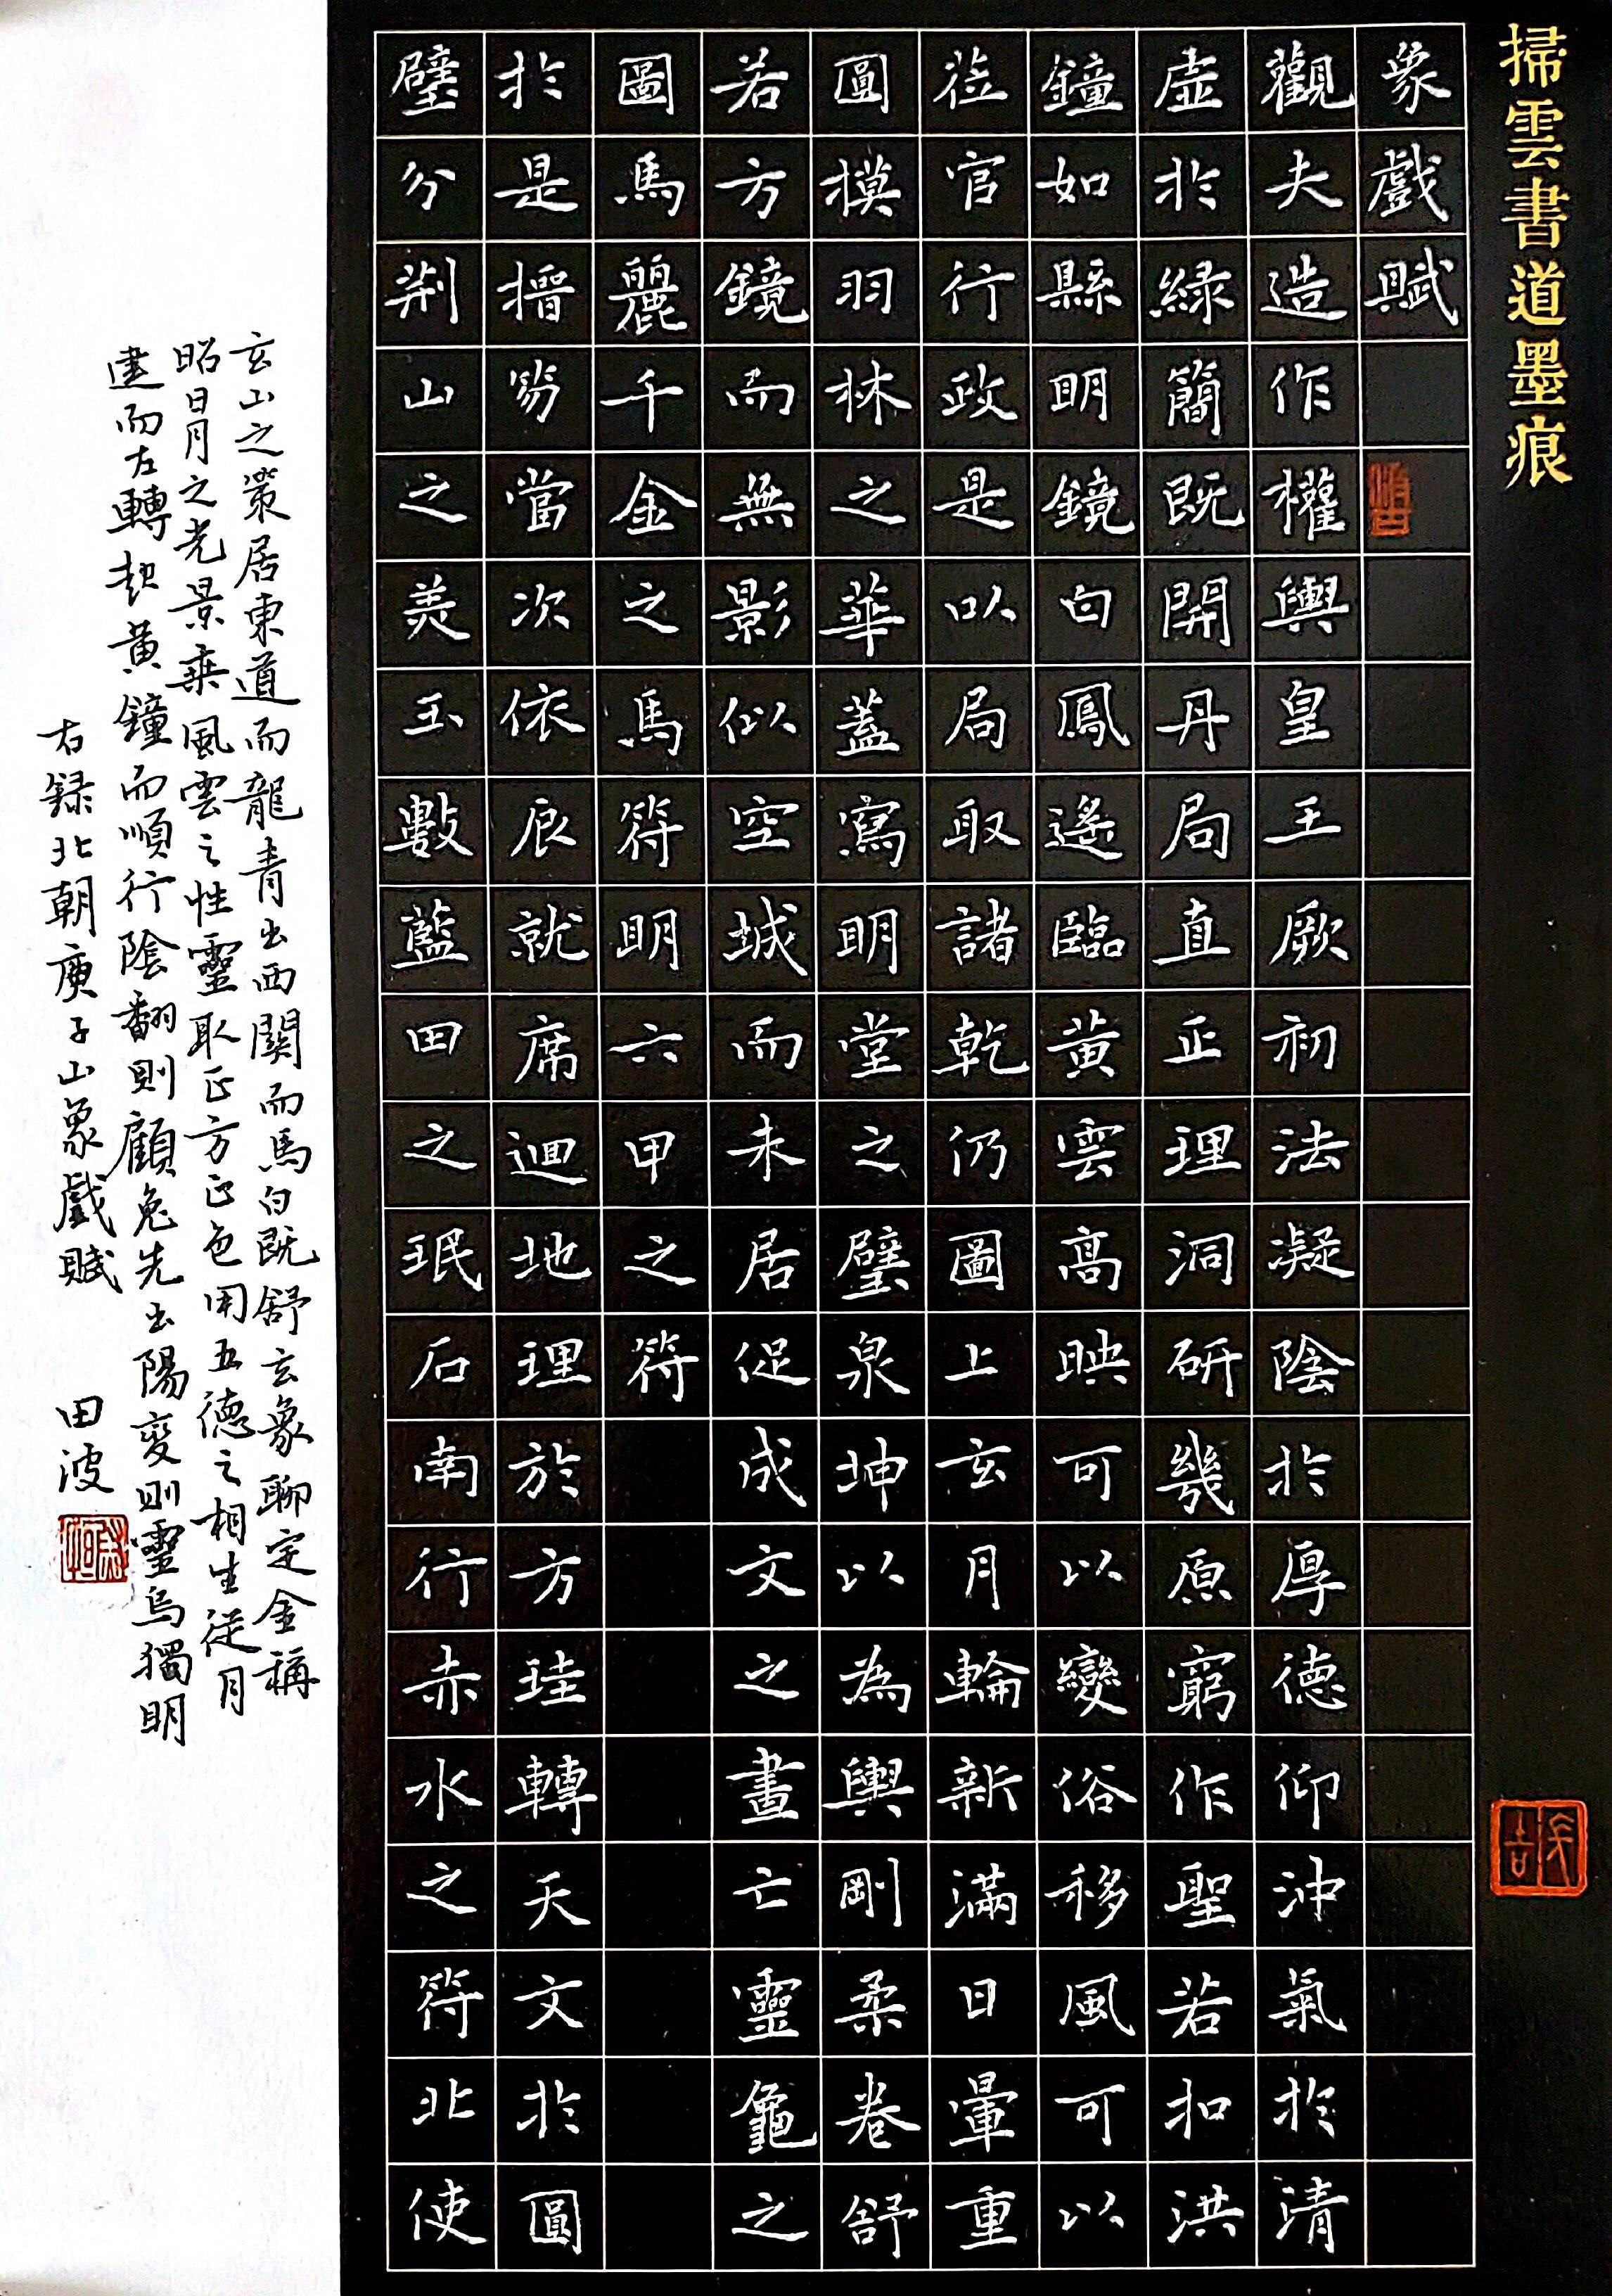 掃雲書道墨痕
象戲賦
觀夫造作權輿皇王厥初法凝陰於厚德仰沖氣於清
虛於綠簡既開丹局直正理洞研幾原窮作聖若扣洪
鐘如縣明鏡白鳳遙臨黃雲高映可以變俗移風可以
莅官行政是以局取諸乾仍圖上玄月輪新滿日暈重
圓模羽林之華蓋寫明堂之璧泉坤以為輿剛柔卷舒
若方鏡而無影似空城而未居促成文之畫亡靈龜之
圖馬麗千金之馬符明六甲之符
於是搢笏當次依辰就席迴地理於方珪轉天文於圓
璧分荆山之美玉數藍田之珉石南行赤水之符北使
玄山之策居東道而龍青出西關而馬白既舒玄象聊定金稱
昭日月之光景乘風雲之性靈取正方正色用五德之相生從月
建而左轉起黃鐘而順行陰翻則顧兔先出陽變則靈烏獨明
右録北朝庾子山象戲賦　田波